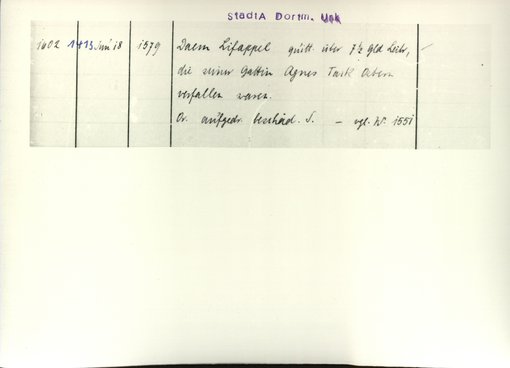 StadtA Dortm. Urk
1602 1413 Juni 18 1579 Daem Lifappel quitt. über 7½ Gld Leibr,
die seiner Gattin Agnes Ostern
verfallen waren.
Or. aufgedr. beschäd. S. – vgl. Nr. 1551